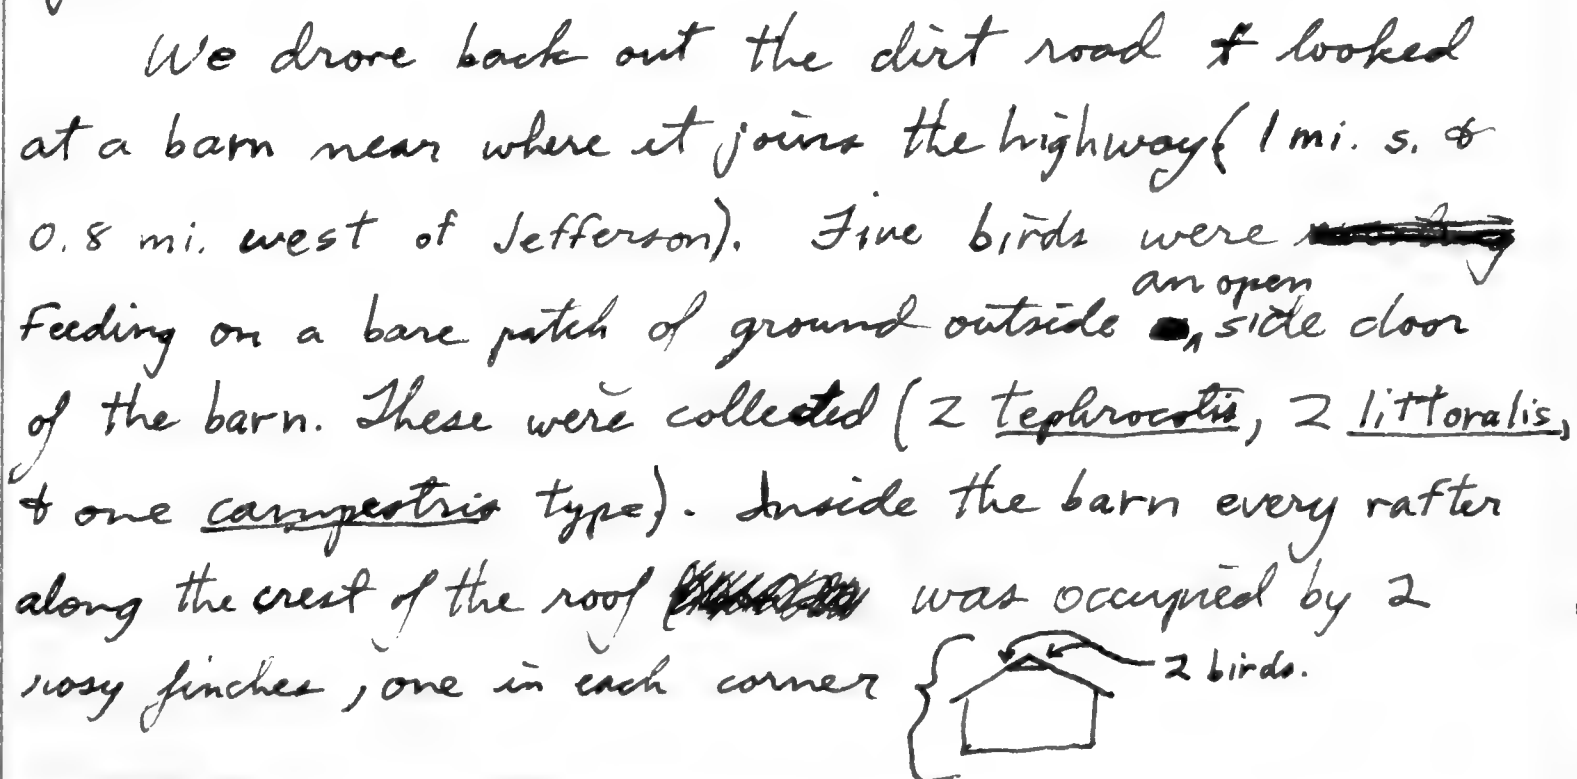 We drove back out the dirt road & looked
at a barn near where it joins the highway (1 mi. s. &
0.8 mi. west of Jefferson). Five birds were
an open
feeding on a bare patch of ground outside ^ side door
of the barn. These were collected (2 tephrocotis, 2 littoralis,
& one campestris type). Inside the barn every rafter
along the crest of the roof was occupied by 2
rosy finches, one in each corner { 2 birds.